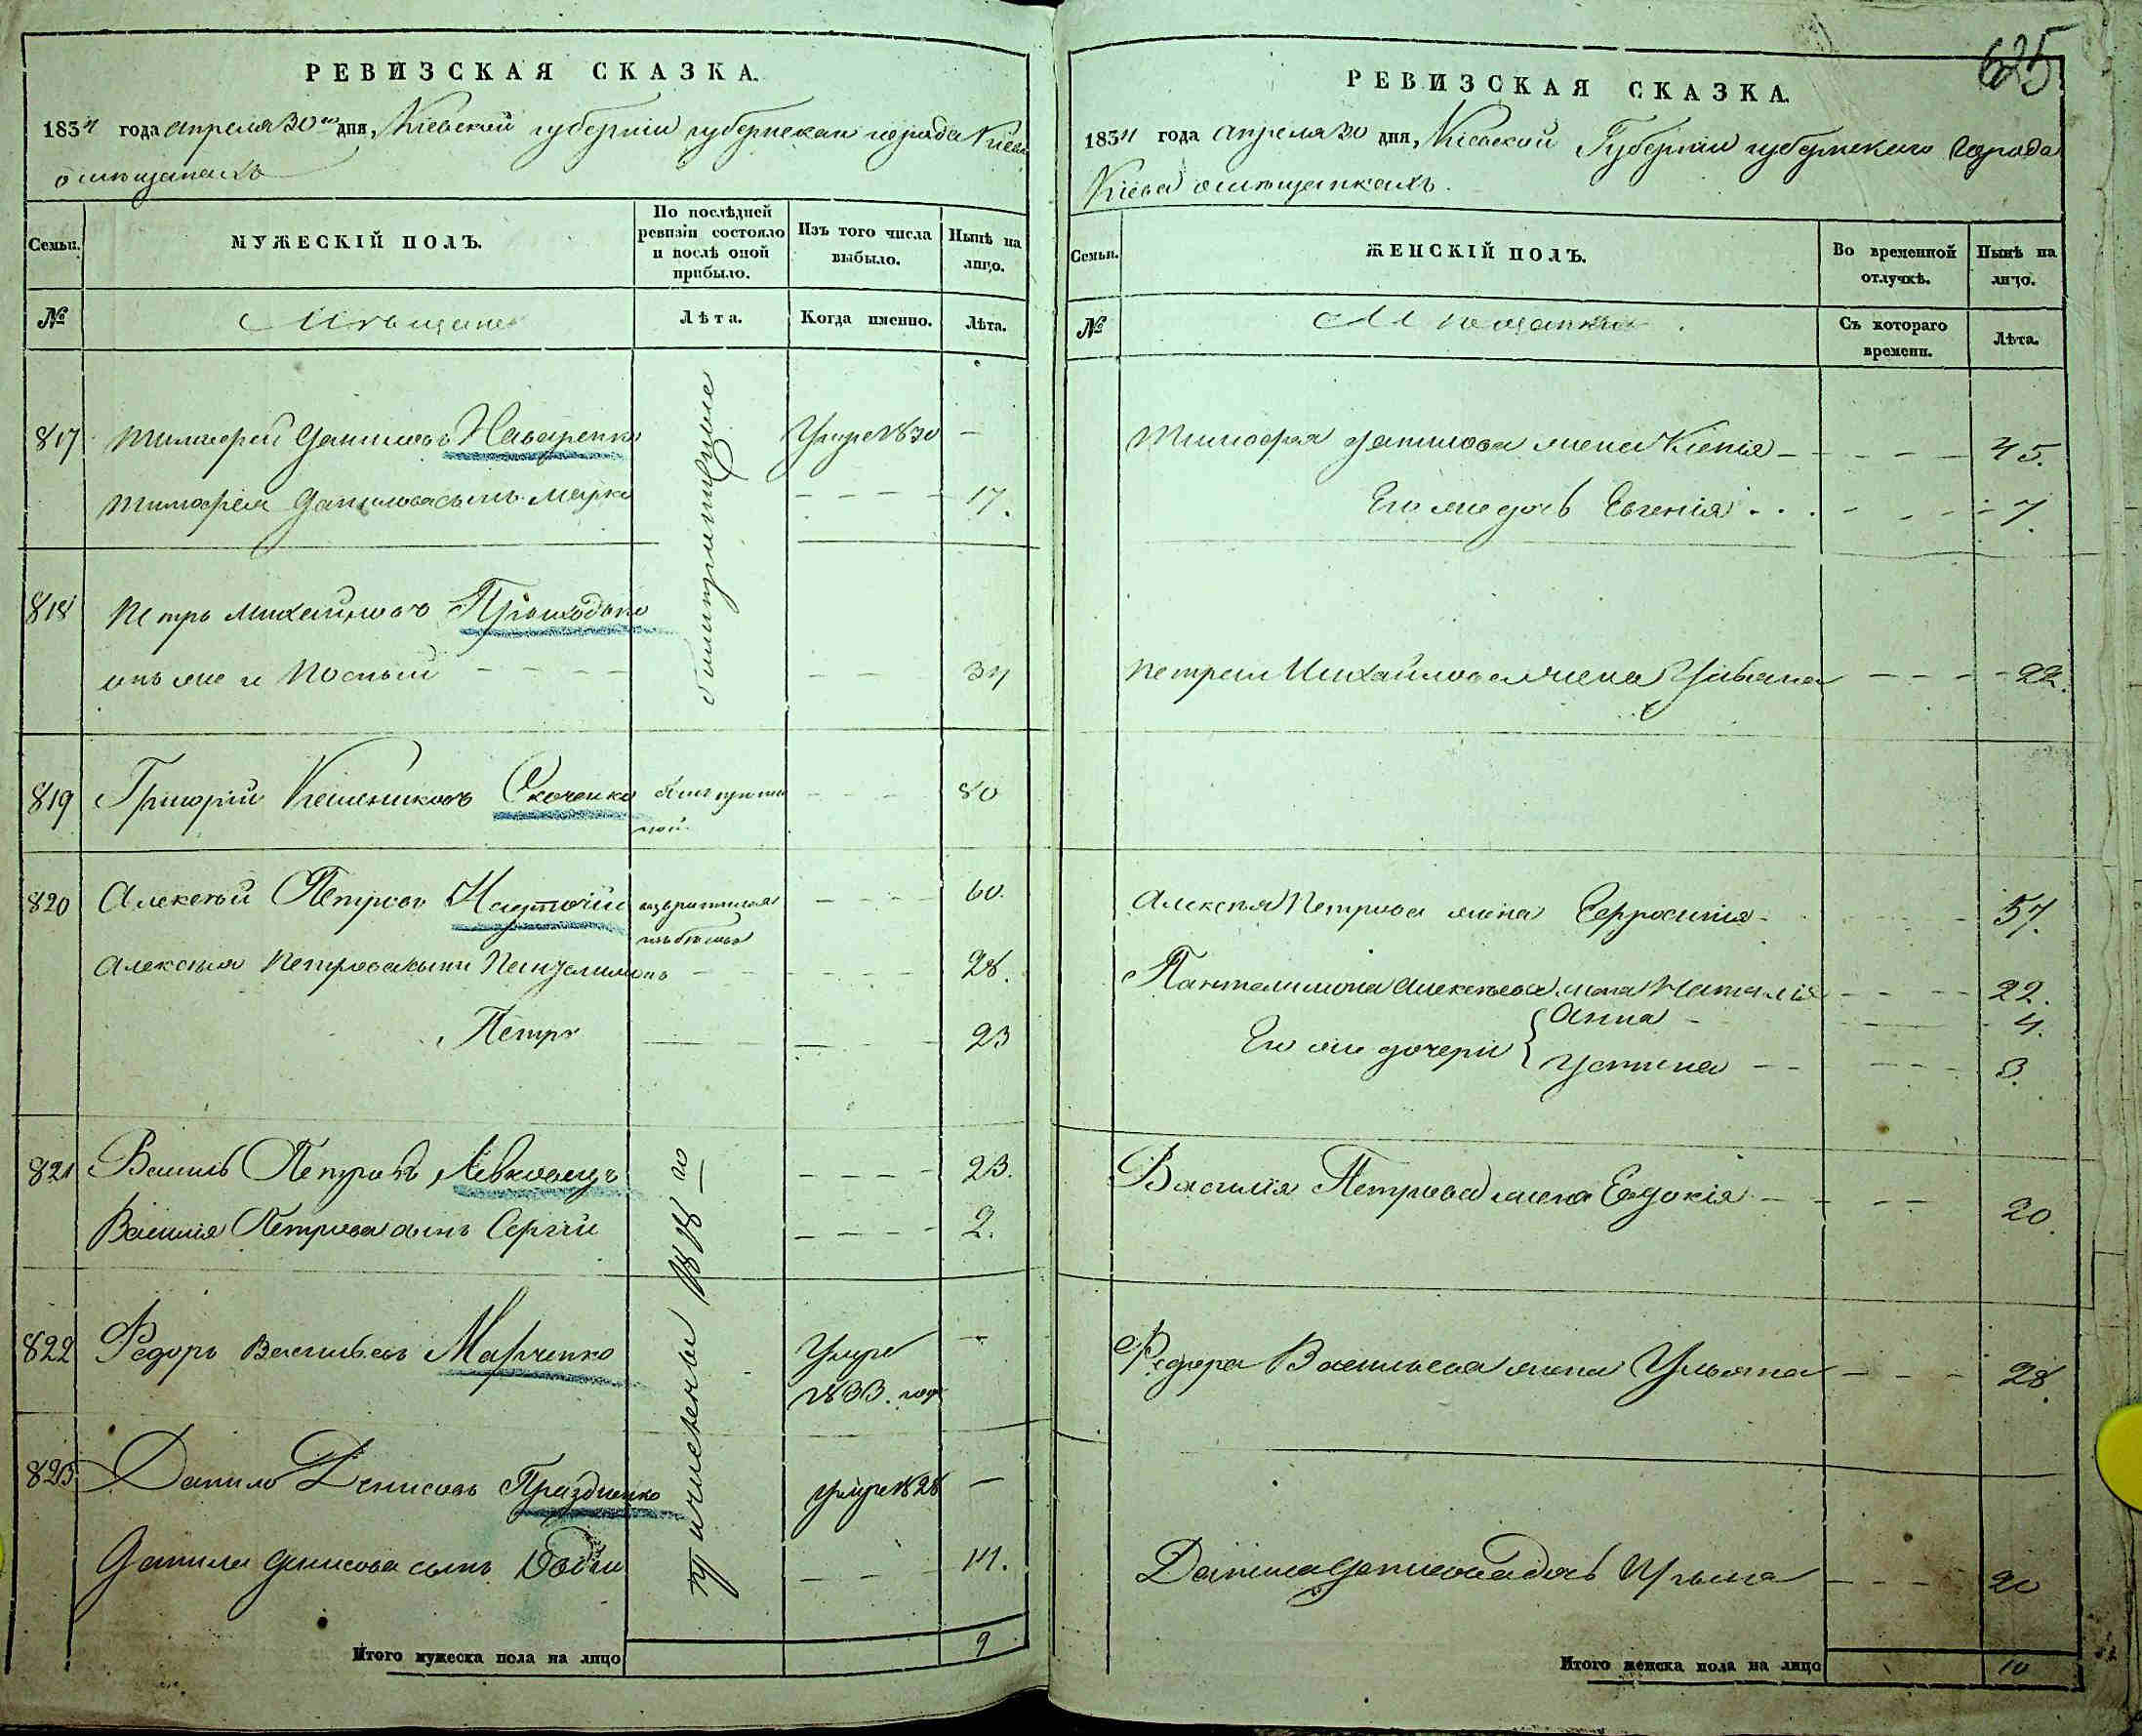 РЕВИЗСКАЯ СКАЗКА.
1834 года апреля 30го дня, Кіевской губерніи губернскаго города Кіева
о мѣщанахъ
Семьи.
МУЖЕСКІЙ ПОЛЪ.
По послѣдней ревизіи состояло и послѣ оной прибыло.
Изъ того числа выбыло.
Нынѣ на лицо.
№
Мѣщане
Лѣта.
Когда именно.
Лѣта.
817 Тимофей Даниловъ Назаренко Умре 1830 —
Тимофея Данилова сынъ Марко 17.
818 Петръ Михайловъ
онъ же и 34
819 Григорій 80
820 Алексѣй Петровъ 60.
Алексѣя Петрова сыни Пантелимонъ 28.
Петръ 23
821 Василь Петровъ Левковецъ 23.
Василія Петрова сынъ Сергій 2.
причислены
822 Федоръ Васильевъ Марченко Умре —
1833. года
823 Данило Денисовъ Праздненко умре 1828 —
Данила Денисова сынъ 14.
Итого мужеска пола на лицо 9
625
РЕВИЗСКАЯ СКАЗКА.
1834 года апреля 30 дня, Кіевской Губерніи губернскаго города
Кіева о мѣщанкахъ.
Семьи.
ЖЕНСКІЙ ПОЛЪ.
Во временной отлучкѣ.
Нынѣ на лицо.
№
Мѣщанки
Съ котораго времени.
Лѣта.
Тимофея Данилова жена Ксенія 45.
Его же дочь Евгенія 7.
Петра Михайлова жена Уліяна 22.
Алексѣя Петрова жена Ефросинія 57.
Пантелимона Алексѣева жена Наталія 22.
Его же дочери Анна 4.
Устина 3.
Василія Петрова жена Евдокія 20.
Федора Васильева жена Ульяна 28.
Данила Денисова дочь 20
Итого женска пола на лицо 10